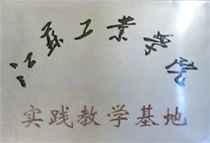 江蘇工業学院
实践教学基地